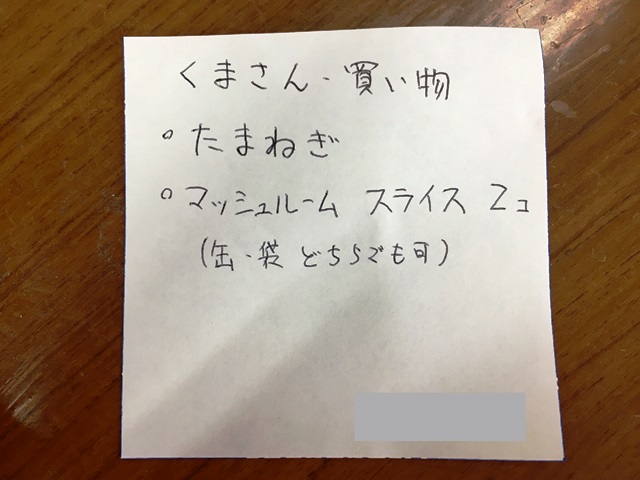 くまさん・買い物
○たまねぎ
○マッシュルーム スライス 2コ
(缶・袋 どちらでも可)